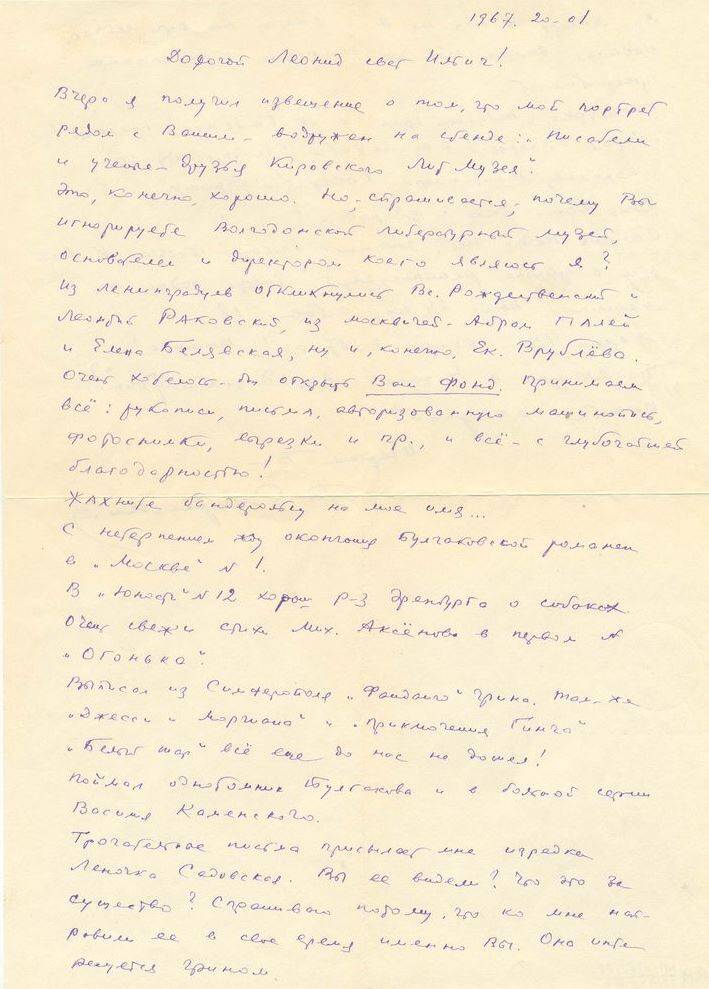 1967. 20-01
Дорогой Леонид свет Ильич!
Вчера я получил извещение о том, что мой портрет
рядом с Вашим – водружен на стенде: „Писатели
и ученые – друзья Кировского Лит Музея".
Это, конечно, хорошо. Но, спрашивается, почему Вы
игнорируете Волгодонской литературный музей,
основателем и директором коего являюсь я?
Из ленинградцев откликнулись Вс. Рождественский и
Леонтий Раковский, из москвичей – Абрам Палей
и Елена Белявская, ну и, конечно, Ек. Врублёва.
Очень хотелось бы открыть Ваш Фонд. Принимаем
всё: рукописи, письма, авторизованную машинопись,
фотоснимки, вырезки и пр., и всё – с глубочайшей
благодарностью!
ЖАХните бандерольку на мое имя...
С нетерпением жду окончания Булгаковской романеи
в „Москве" N 1.
В „Юность" N 12 хорош р-з Эренбурга о собаках
Очень свежи стихи Мих. Аксёнова в первом N
„Огонька".
Выписал из Симферополя „Фанданго" Грина. Там-же
„Джесси и Моргиана" и „Приключения Гинча"
„Белый шар" всё еще до нас не дошел!
Поймал однотомник Булгакова и в большой серии
Василия Каменского.
Трогательные письма присылает мне изредка
Леночка Садовская. Вы ее видели? Что это за
существо? Спрашиваю потому, что ко мне нап-
равили ее в свое время именно Вы. Она инте
ресуется Грином.